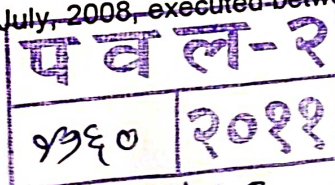 July, 2008, executed betw
पवल-२
७३६० २०११